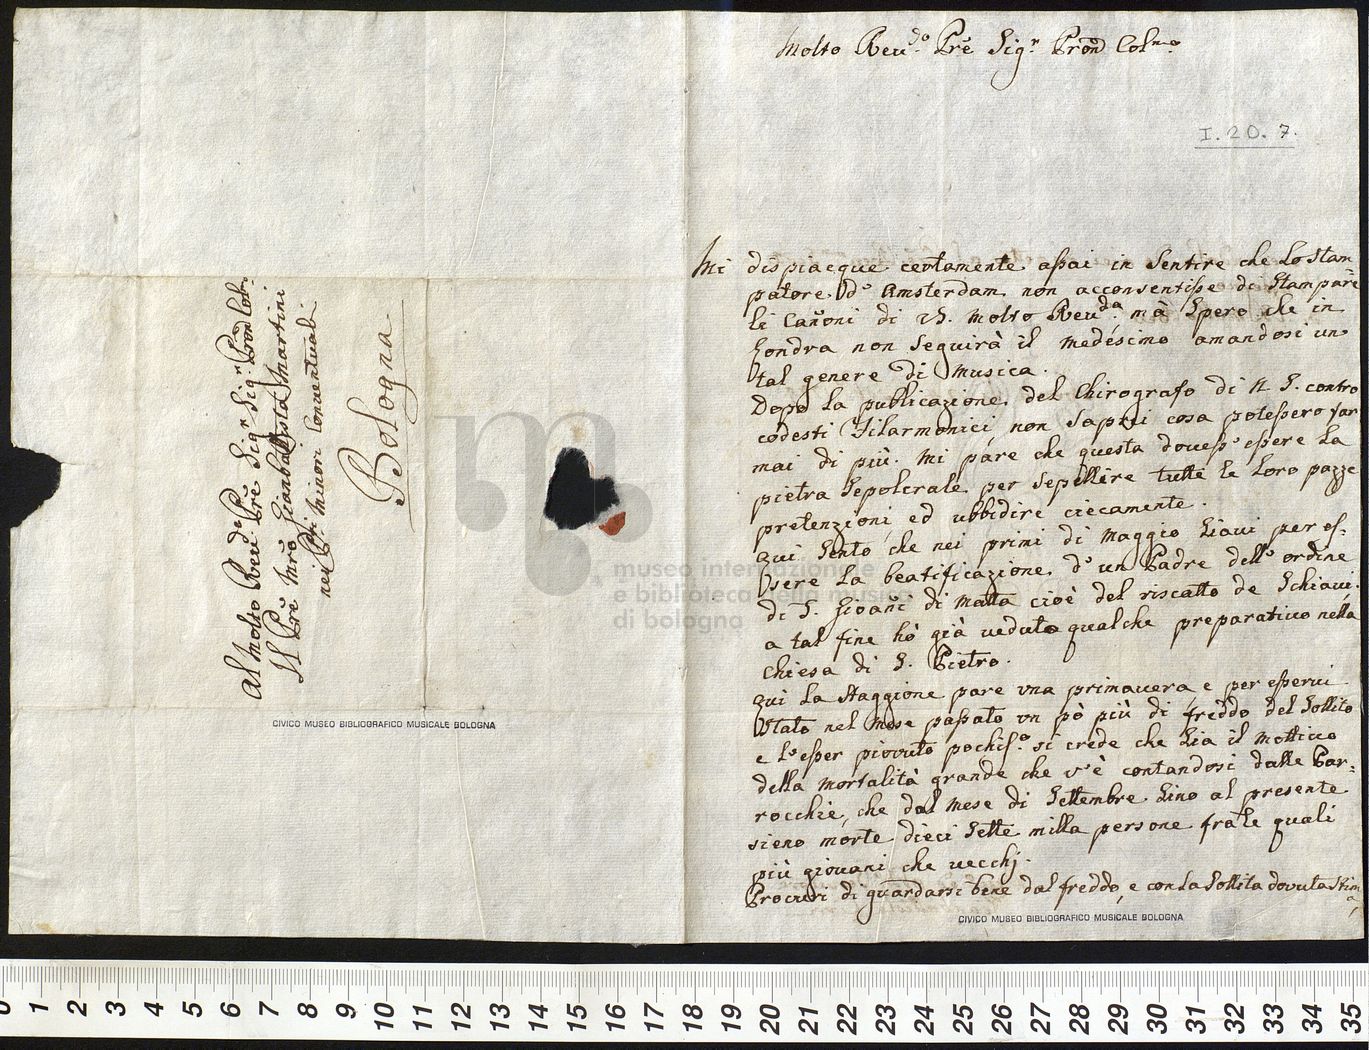 Al Molto Reud.º Prē Sigr Sigr. Pron̄ Col.
Il Prē Mrō Gianbattista Martini
nei Pri Minori Conventuali
Bologna
CIVICO MUSEO BIBLIOGRAFICO MUSICALE BOLOGNA
Molto Reu.do Prē Sig.r Pron̄ Col.mo
I. 20. 7.
Mi dispiacque certamente assai in sentire che lo Stam
patore d'Amsterdam non acconsentisse di stampare
li Cañoni di V. Molto Reu.da mà spero che in
Londra non seguirà il medesimo amandosi un
tal genere di Musica.
Dopo la publicazione del Chirografo di N. S. contro
codesti Filarmonici, non saprei cosa potessero far
mai di più. Mi pare che questa douess' essere la
pietra sepolcrale per sepellire tutte le loro pazze
pretenzioni, ed ubbidire ciecamente.
Qui sento, che nei primi di Maggio siaui per es-
sere la beatificazione d'un Padre dell'ordine
di S. Gioañi di Matta cioè del riscatto de Schiaui.
a tal fine hò già ueduto qualche preparatiuo nella
Chiesa di S. Pietro.
Qui la staggione pare una primauera e per esserui
stato nel mese passato un pò più di freddo del sollito
e l'esser piovuto pochis.º si crede che sia il mottiuo
della mortalità grande che v'è contandosi dalle Par=
rocchie, che dal mese di Settembre sino al presente
sieno morte dieci sette milla persone frà le quali
più giouani che uecchj.
Procuri di guardarsi bene dal freddo, e con la sollita dovuta stim
a,
CIVICO MUSEO BIBLIOGRAFICO MUSICALE BOLOGNA
museo internazionale
e biblioteca della musica
di bologna
0 1 2 3 4 5 6 7 8 9 10 11 12 13 14 15 16 17 18 19 20 21 22 23 24 25 26 27 28 29 30 31 32 33 34 35